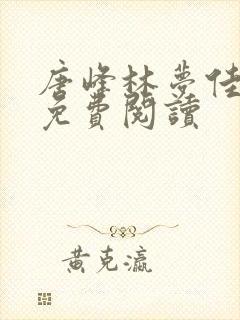 唐峰林夢佳
免費閱讀
黃克瀛